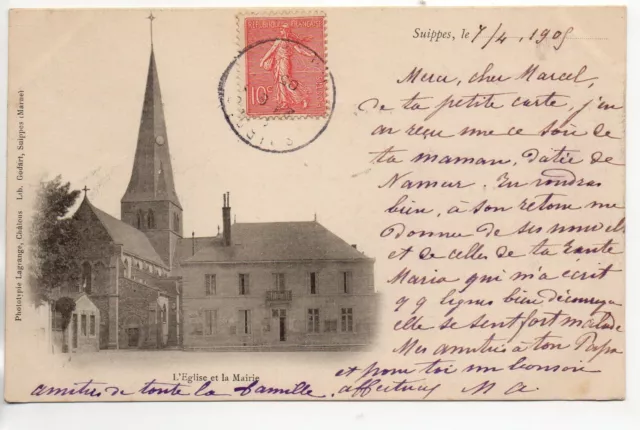 Suippes, le 7/4 1905
RÉPUBLIQUE FRANÇAISE
10c
Merci, cher Marcel,
de ta petite carte, j'en
ai reçu une ce soir de
ta maman, datée de
Namur. Tu voudras
bien, à son retour me
donner de ses nouvelles
et de celles de ta tante
Maria qui m'a écrit
qq lignes bien
elle se sent fort malade
Mes amitiés à ton Papa
et pour toi un bonsoir
affectueux M A
amitiés de toute la famille,
L'Eglise et la Mairie
Phototypie Lagrange, Châlons Lib. Godart, Suippes (Marne)